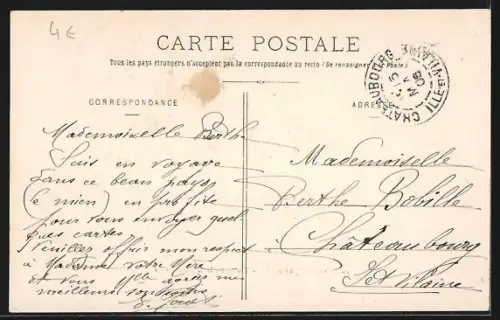 4€
CARTE POSTALE
Tous les pays étrangers n'acceptent pas la correspondance au recto (Se renseigner à la Poste)
CHATEAUBOURG ILLE-ET-VILAINE
CORRESPONDANCE
ADRESSE
Mademoiselle Berthe
Suis en voyage
dans ce beau pays
(le mien) en profite
pour vous envoyer quel
ques cartes.
Veuillez offrir mon respect
à Madame votre Mère
et vous Mlle
meilleurs
Mademoiselle
Berthe Bobille
Châteaubourg
Ile et Vilaine